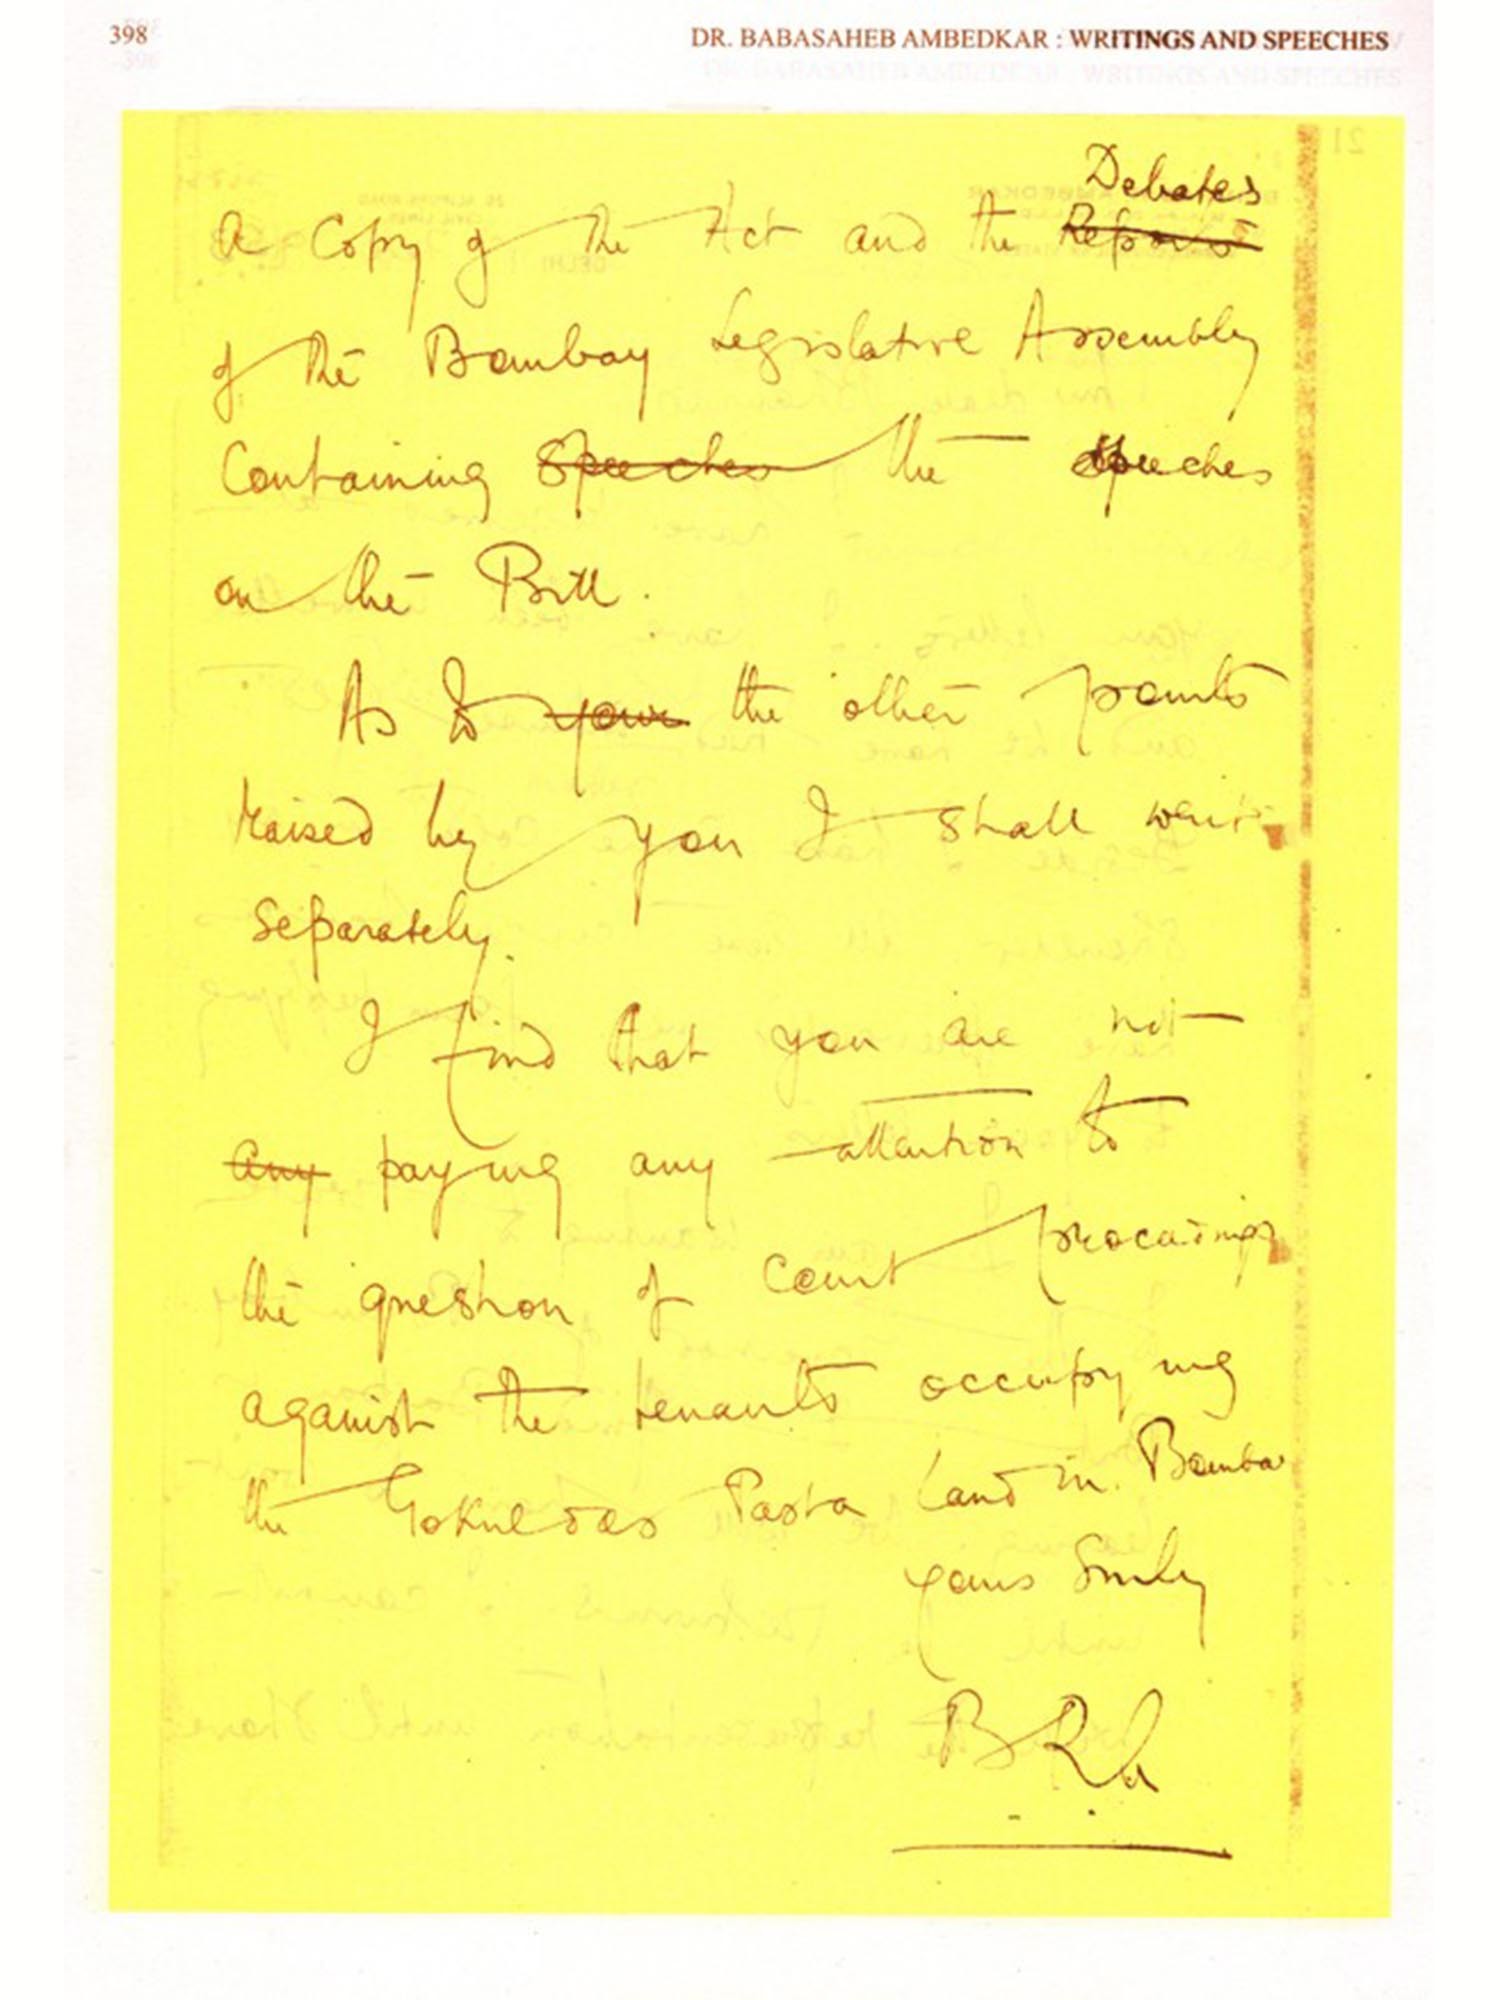 398
DR. BABASAHEB AMBEDKAR : WRITINGS AND SPEECHES
Debates
a Copy of the Act and the Reports
of the Bombay Legislative Assembly
Containing Speeches the speeches
on the Bill.
As to your the other points
raised by you I shall write
separately.
I find that you are not
any paying any attention to
the question of court proceedings
against the tenants occupying
the Gokuldas Pasta Land in Bombay
yours Sincerely
BRA